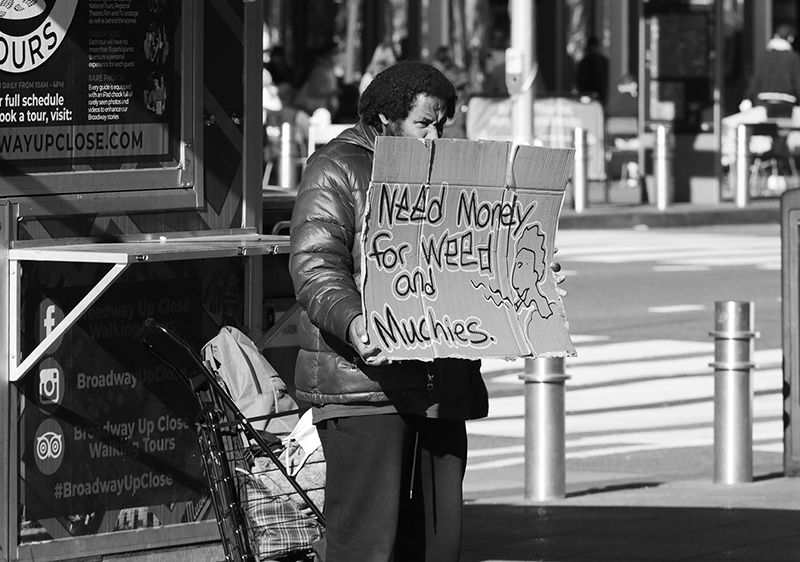 OURS
DAILY FROM 10AM - 4PM
r full schedule
ook a tour, visit:
WAYUPCLOSE.COM
National Tours, Regional
Theatre, Film and TV, onstage
as well as behind the scenes
GROUP SIZE
Each tour will have no
more than 15 participants
to ensure a
personal experience
for each guest
RARE PHOTOS
Every guide is equipped
with an iPad chock full of
rarely seen photos
and videos to enhance our
Broadway stories
NEEd Money
for WEEd
and
Muchies.
Broadway Up Close
Walking Tours
BroadwayUpClose
Broadway Up Close
Walking Tours
#BroadwayUpClose